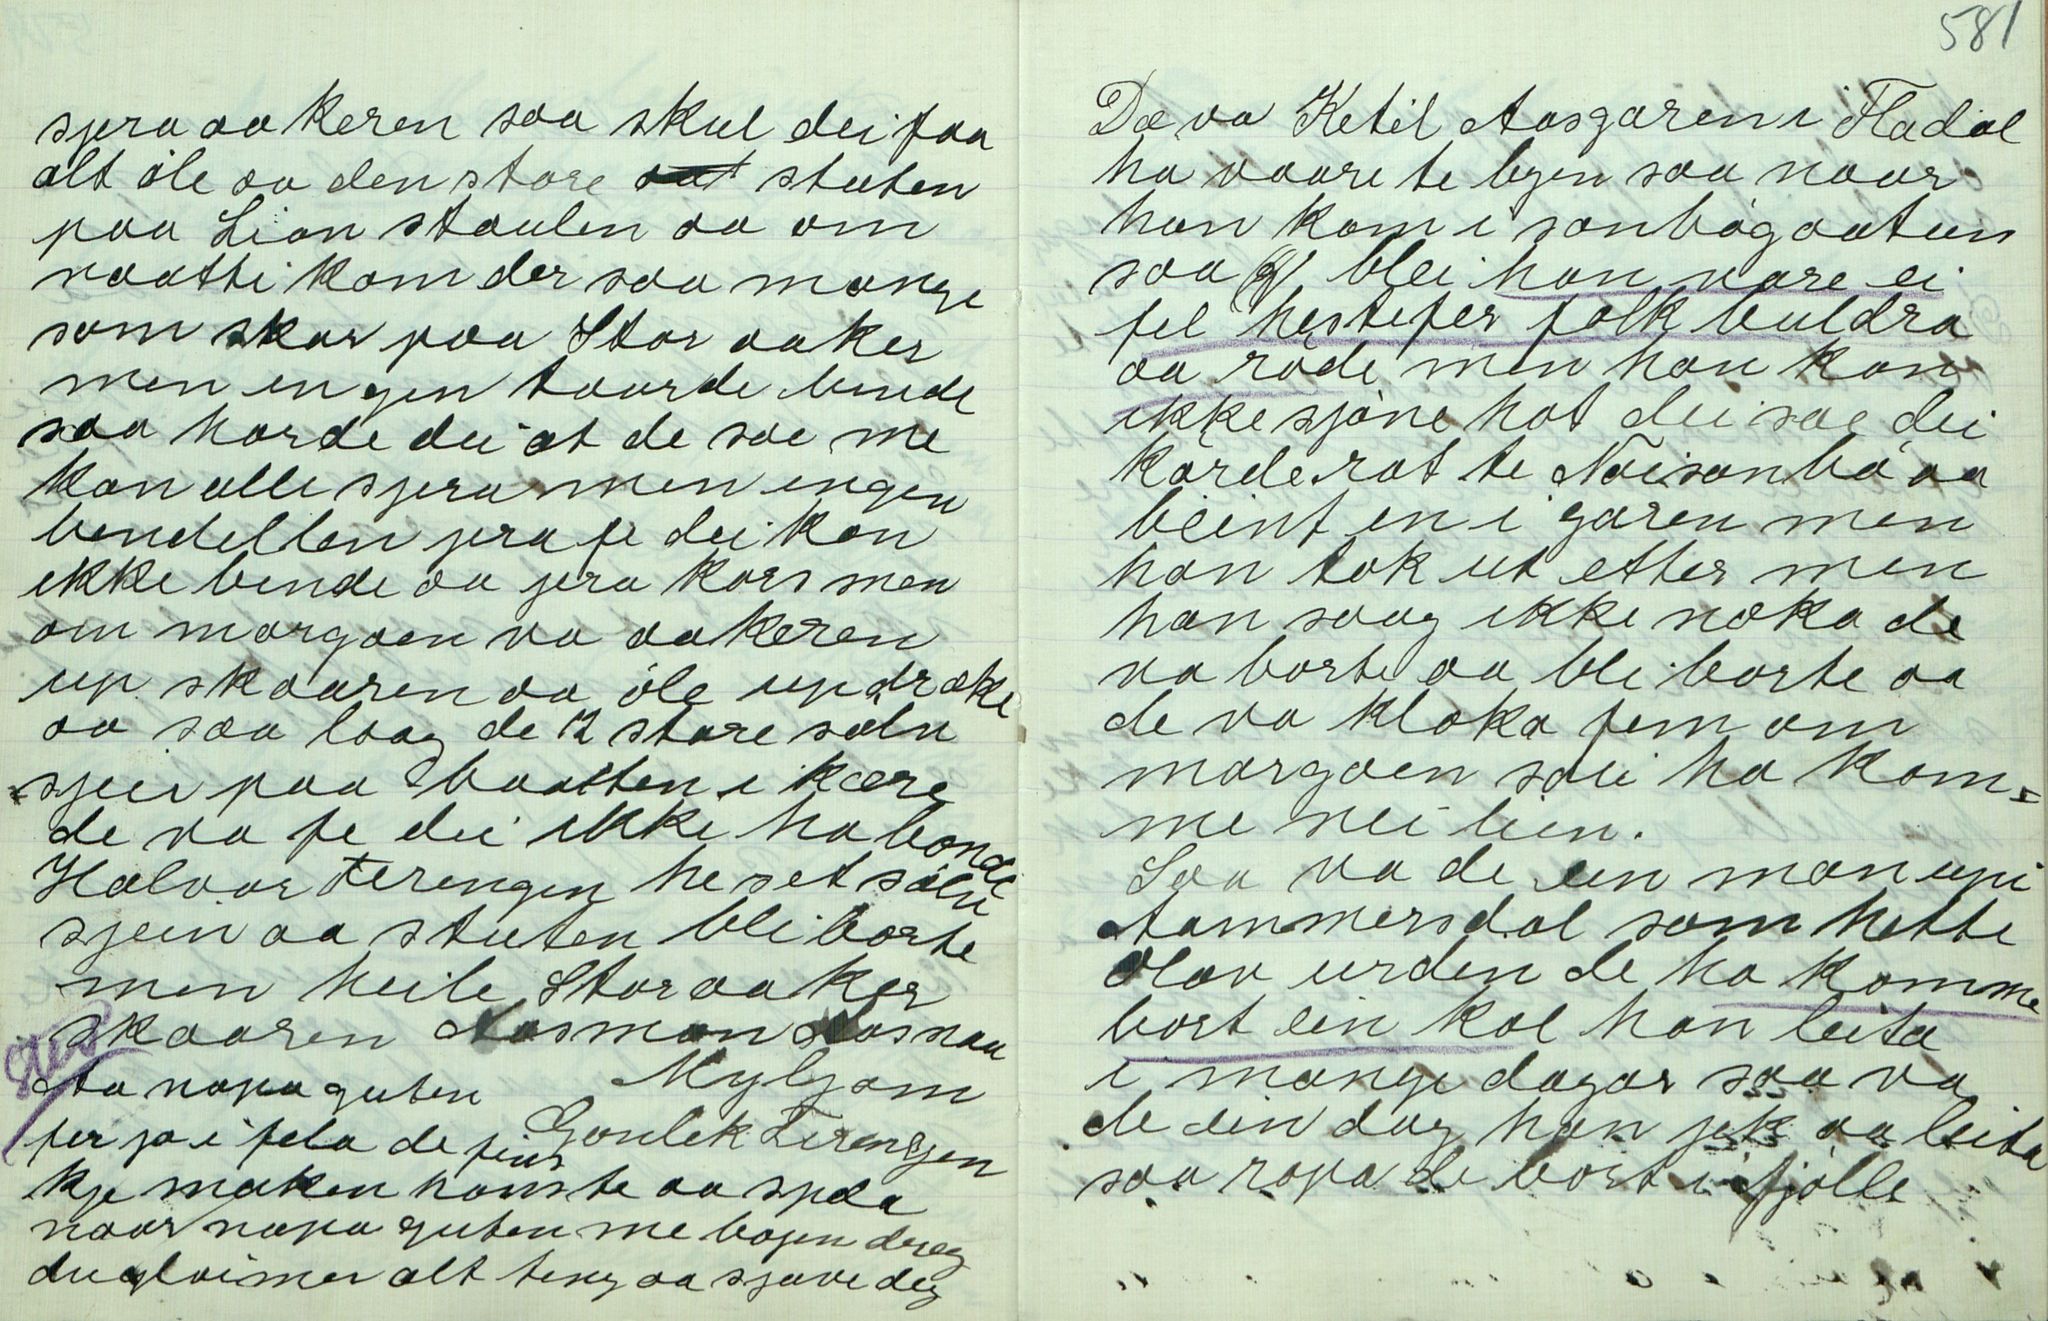 581
sjera aakeren saa skul dei faa
alt öle aa den store stuten
paa Lian staulen aa om
naatti kom der saa mange
som skar paa Storaaker
men engen taarde binde
saa horde dei at de sae me
kan alle sjera men engen
bendellen jera fe dei kan
ikke bende aa jera kors men
om morgaen va aakeren
up skaaren aa öle updrokke
aa saa laag de 12 store söln
sjeir paa baatten i kære
de va fe dei ikke ha bonde
Halvor Terengen he set söln
sjein aa stuten bli borte
men heile Storaaker
skaaren Aasmon Aasnaa
Myljom
Aa napa guten
fer ja i fela de fins Gonlek Terengen
kje maken honste aa spela
naar napa guten me bogen dreg
du gloimer alt teng aa sjave deg
Dæ va Ketil Aasgaren i Fladal
ha vaare te byen saa naar
han kom i sonbögaatun
saa blei han vare ei
fel hestefer folk buldra
aa rode men han kan
ikke sjöne hot dei sae dei
körde rat te Nöisonbö aa
beint en i garen men
han tok ut etter men
han saag ikke noka de
va borte aa bli borte aa
de va kloka fem om
morgaen saei ha kom=
me nei lien.
Saa va de ein man upi
Aammersdal som hette
Olav urden de ha komme
bort ein kal han leita
i mange dagar saa va
de ein dag han jek aa leita
saa ropa de bort i fjölle